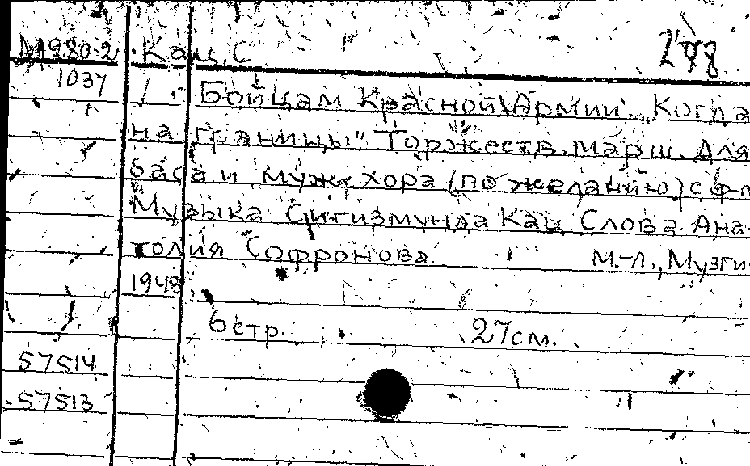 М980-2 Кац С. 248
1037 Бойцам Красной Армии. Когда
на границы" Торжеств. марш. Для
баса и муж. хора (по желанию) с ф-п
Музыка Сигизмунда Кац Слова Ана-
толия Софронова М.-Л., Музги
1948
6 стр. 27 см.
57514
57513